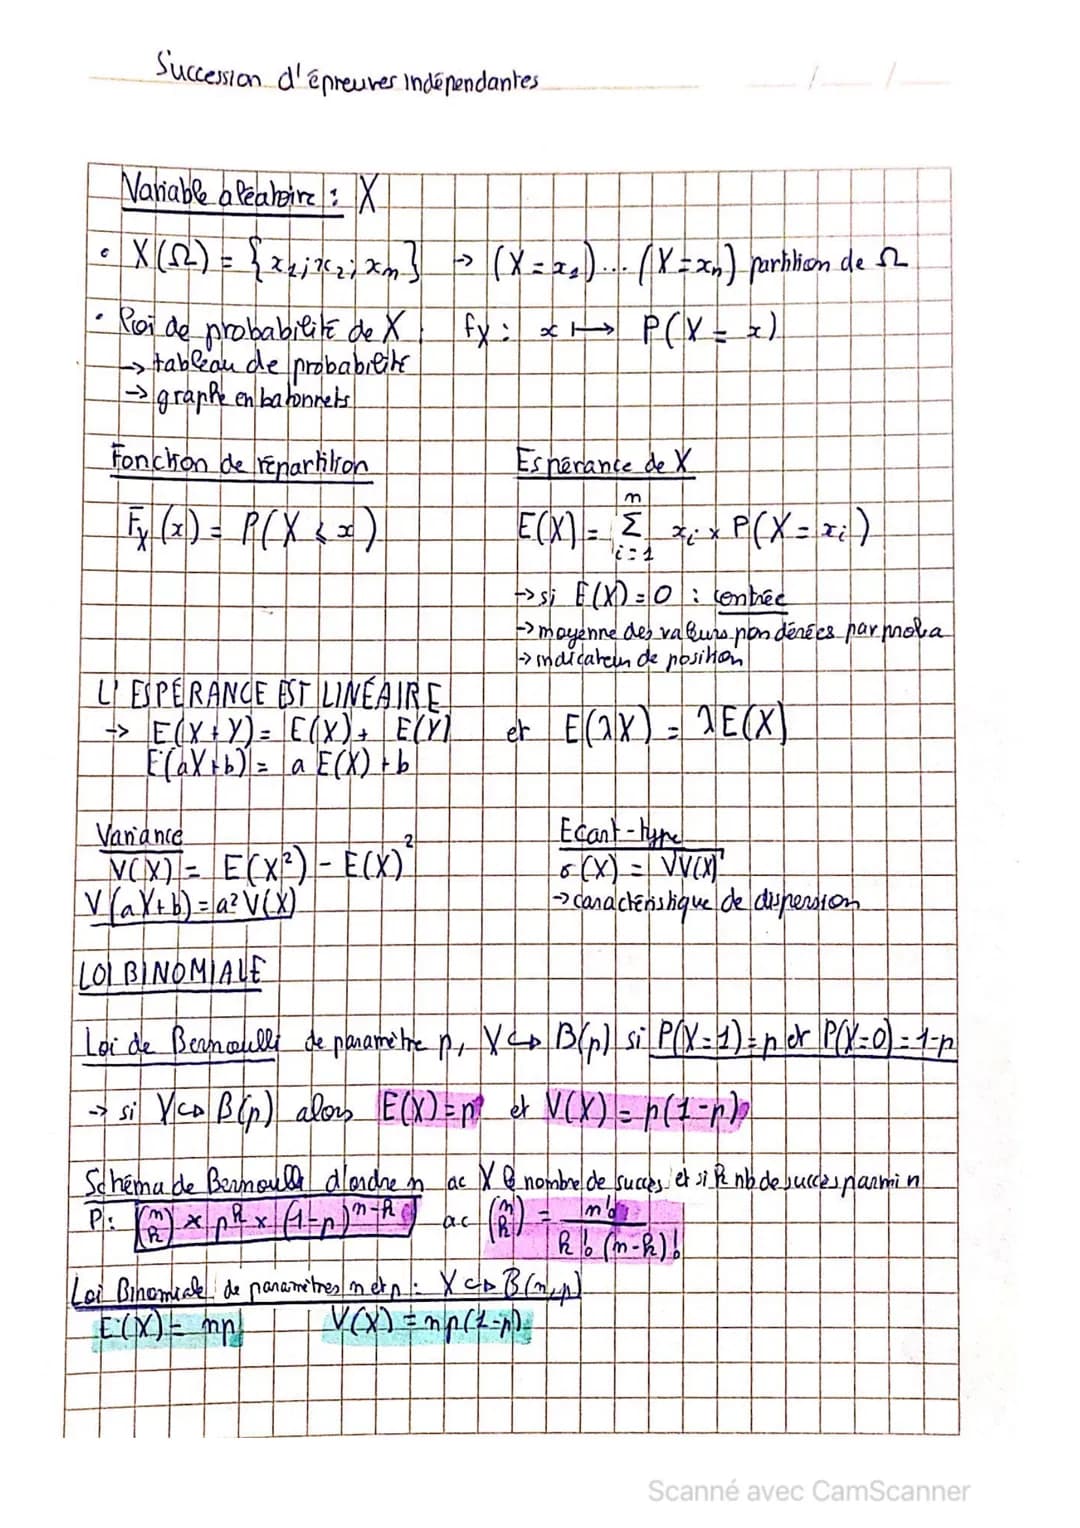 Succession d'épreuves indépendantes
Variable aléatoire : X
• X(Ω) = {x₁; x₂; xₙ} → (X = x₁)... (X = xₙ) partition de Ω
• Loi de probabilité de X fₓ : x ↦ P(X = x)
→ tableau de probabilité
→ graphe en batonnets
Fonction de répartition
Fₓ(x) = P(X ≤ x)
Espérance de X
E(X) = Σ_{i=1}^{n} xᵢ × P(X = xᵢ)
→ si E(X) = 0 : centrée
→ moyenne des valeurs pondérées par proba
→ indicateur de position
L'ESPÉRANCE EST LINÉAIRE
→ E(X+Y) = E(X) + E(Y) et E(λX) = λE(X)
E(aX+b) = a E(X) + b
Variance
V(X) = E(X²) - E(X)²
V(aX+b) = a² V(X)
Ecart-type
σ(X) = √V(X)
→ caractéristique de dispersion
LOI BINOMIALE
Loi de Bernoulli de paramètre p, X ↪ B(p) si P(X=1) = p et P(X=0) = 1-p
→ si X ↪ B(p) alors E(X) = p et V(X) = p(1-p)
Schéma de Bernoulli d'ordre n ac X le nombre de succès et si k nb de succès parmi n
P : (n k) × p^k × (1-p)^{n-k} ac (n k) = n! / k!(n-k)!
Loi Binomiale de paramètres n et p : X ↪ B(n,p)
E(X) = np V(X) = np(1-p)
Scanné avec CamScanner